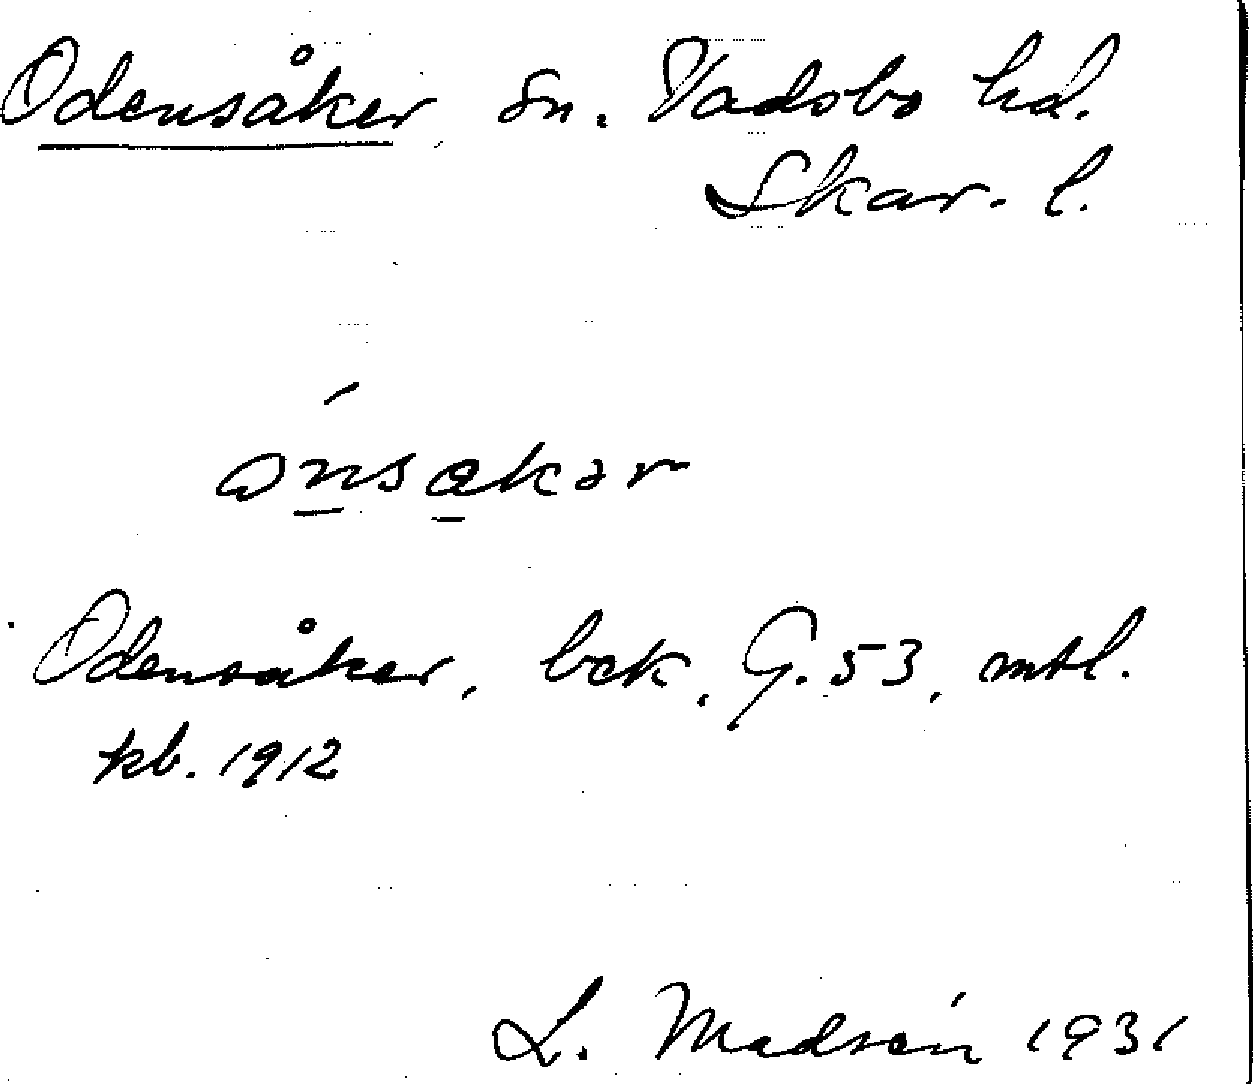 Odensåker sn. Vadsbo hd.
Skar. l.
ónsakər
Odensåker, bck, G. 53, mtl.
kb. 1912
L. Madsén 1931